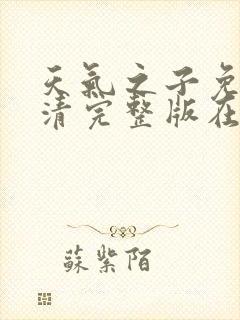 天氣之子免
清完整版在
蘇紫陌